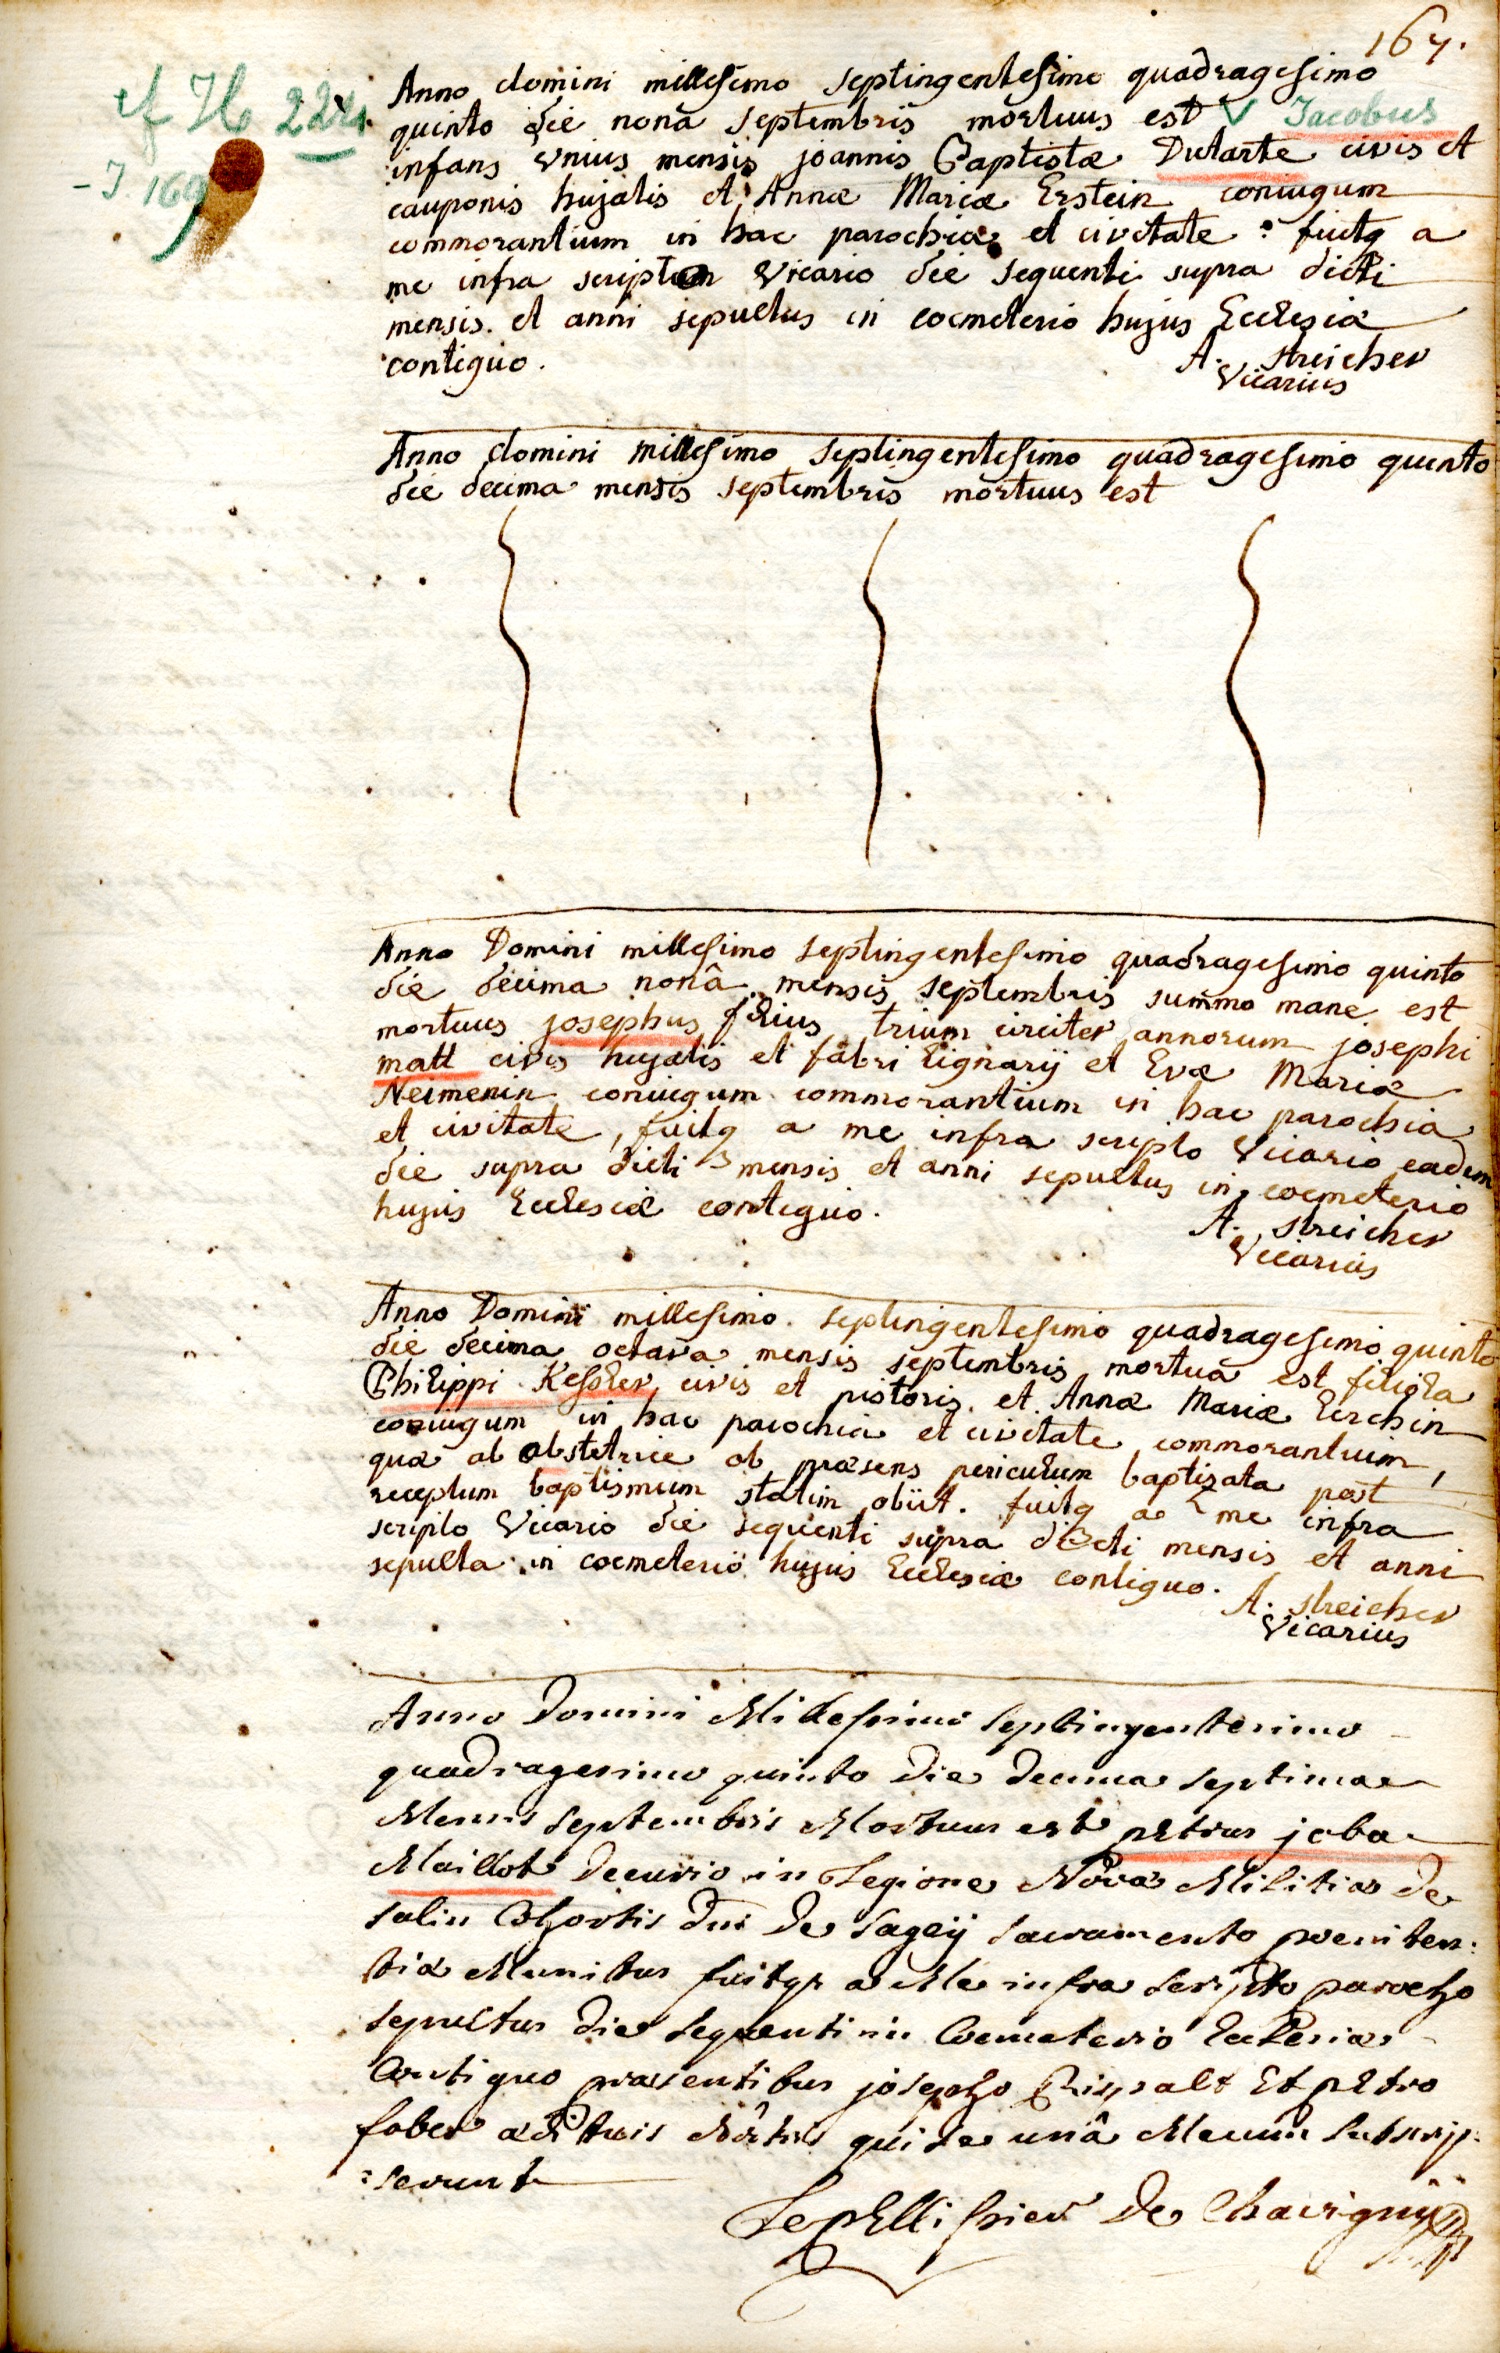 167.
cf H 224
- J. 169
Anno domini millesimo septingentesimo quadragesimo
quinto die nonâ septembris mortuus est V Jacobus
infans unius mensis joannis Baptistæ Dutarte civis et
cauponis hujatis et Annæ Mariæ Erstein coniugum
commorantium in hac parochia et civitate : fuitq a
me infra scripto Vicario die sequenti supra dicti
mensis. et anni sepultus in coemeterio hujus Ecclesiæ
contiguo.
A. streicher
Vicarius
Anno domini millesimo septingentesimo quadragesimo quinto
die decima mensis septembris mortuus est
Anno Domini millesimo septingentesimo quadragesimo quinto
die decima nonâ mensis septembris summo mane est
mortuus josephus filius trium circiter annorum josephi
matt civis hujatis et fabri lignarij et Evæ Mariæ
Neimenin coniugum commorantium in hac parochia
et civitate, fuitq a me infra scripto Vicario eadem
die supra dicti mensis et anni sepultus in coemeterio
hujus Ecclesiæ contiguo.
A. streicher
Vicarius
Anno Domini millesimo septingentesimo quadragesimo quinto
die decima octava mensis septembris mortua est filiola
Philippi Kessler civis et pistoris et Annæ Mariæ Lerchin
coniugum in hac parochia et civitate commorantium,
quæ ab obstetrice ob præsens periculum baptisata post
receptum baptismum statim obiit. fuitq a me infra
scripto Vicario die sequenti supra dicti mensis et anni
sepulta in coemeterio hujus Ecclesiæ contiguo.
A. streicher
Vicarius
Anno Domini Millesimo septingentesimo
quadragesimo quinto die decima septima
Mensis septembris Mortuus est petrus joba
Maillot Decurio in Legione Nova Militiæ de
salin Cohortis Dni de sagey sacramento poeniten:
tiæ Munitus fuitqe a Me infra scripto parocho
sepultus die sequenti in Coemeterio Ecclesiæ
Contiguo præsentibus josepho Rispalt Et petro
faber ædituis Nôstris qui se unâ Mecum subscrip:
:serunt
Lepellissier De Chavigny